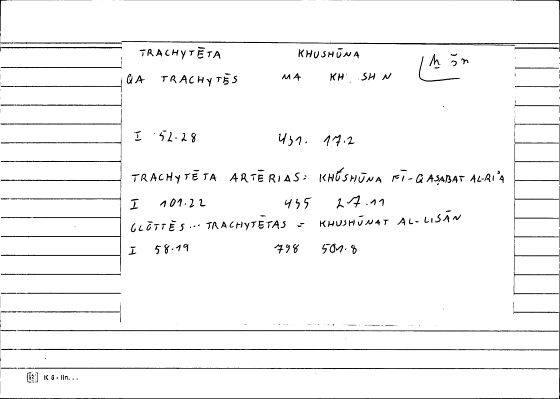 TRACHYTĒTA KHUSHŪNA ḫ šn
QA TRACHYTĒS MA KH SH N
I 52.28 491. 17.2
TRACHYTĒTA ARTĒRIAS: KHUSHŪNA FĪ-QAṢABAT AL-RI'A
I 101.22 495 27.11
GLŌTTĒS... TRACHYTĒTAS = KHUSHŪNAT AL-LISĀN
I 58.19 798 501.8
K 6 - lln...